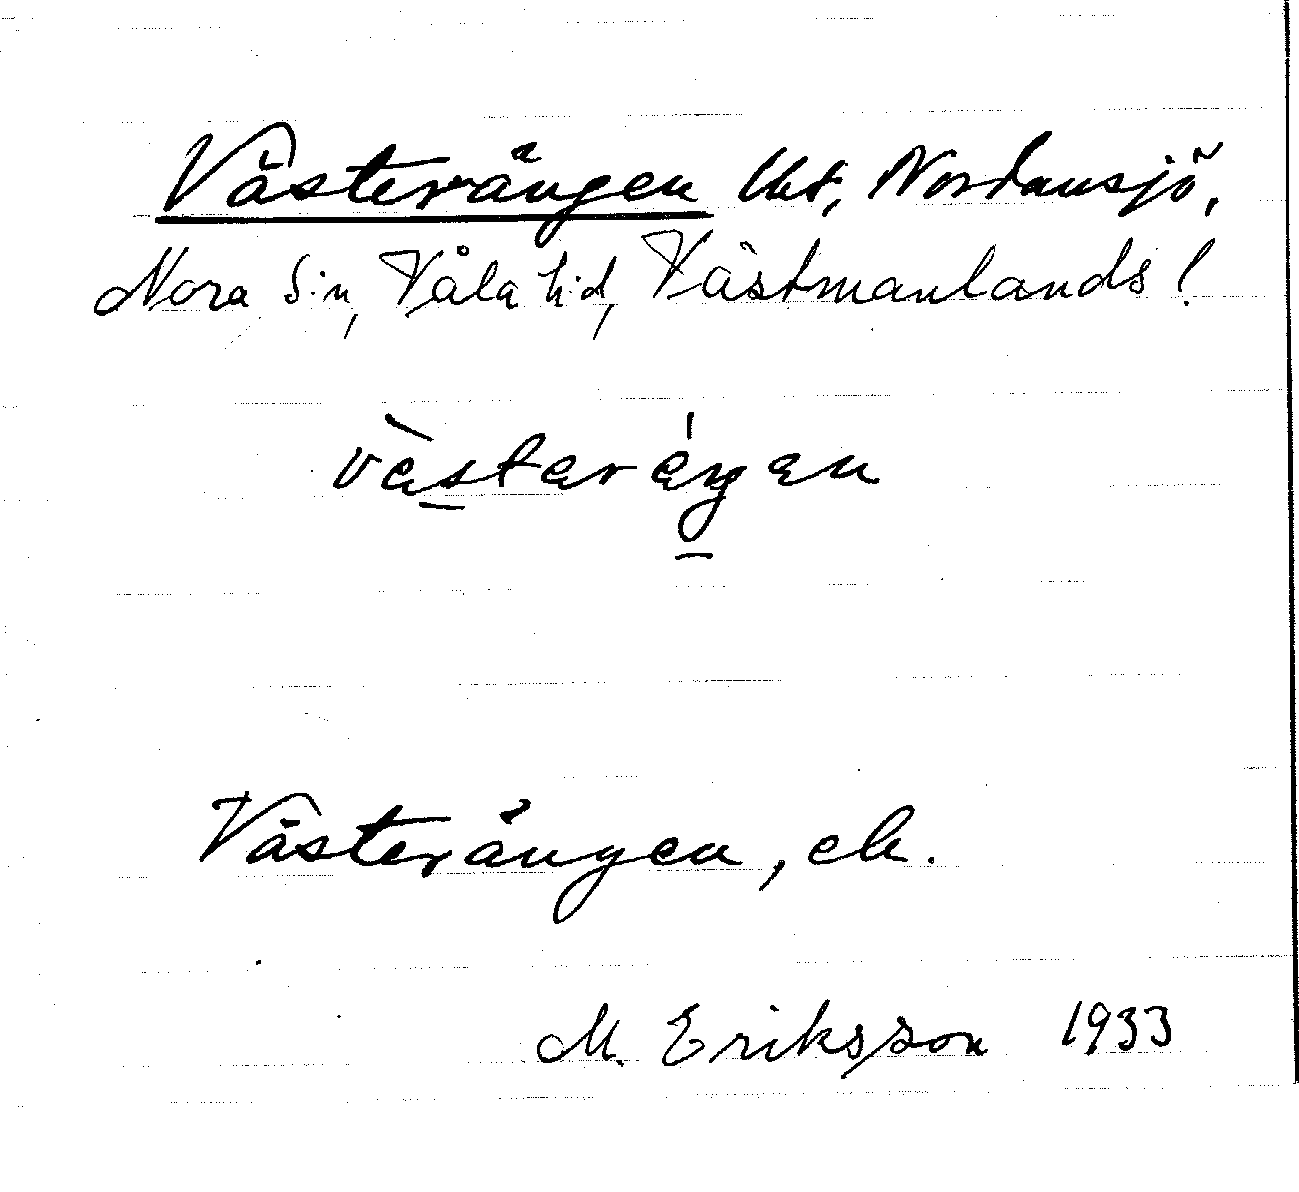 Västerängen Uht, Nordansjö,
Nora s:n, Våla h:d, Västmanlands l
västeräŋen
Västerängen, ek.
M. Eriksson 1933